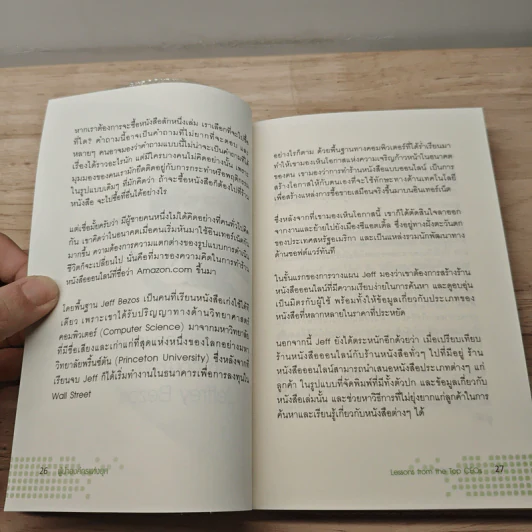 หากเราต้องการจะซื้อหนังสือสักหนึ่งเล่ม เราเลือกที่จะไปซื้อ
ที่ใด? คำถามนี้อาจเป็นคำถามที่ไม่ยากที่จะตอบ และ
หลายๆ คนอาจมองว่าคำถามแบบนี้ไม่น่าจะเป็นคำถามที่ได้
เรื่องได้ราวอะไรนัก แต่มีใครบางคนไม่คิดอย่างนั้น เพราะ
มุมมองของคนเรามักยึดติดอยู่กับการกระทำหรือพฤติกรรม
ในรูปแบบเดิมๆ ที่มักคิดว่า ถ้าจะซื้อหนังสือก็ต้องไปที่ร้าน
หนังสือ จะไปซื้อที่อื่นได้อย่างไร
แต่เชื่อมั้ยครับว่า มีผู้ชายคนหนึ่งไม่ได้คิดอย่างที่คนทั่วไปคิด
กัน เขาคิดว่าในอนาคตเมื่อคนเริ่มหันมาใช้อินเทอร์เน็ตกัน
มากขึ้น ความต้องการความแตกต่างของรูปแบบการดำเนิน
ชีวิตก็จะเปลี่ยนไป นั่นคือที่มาของความคิดในการทำร้าน
หนังสือออนไลน์ที่ชื่อว่า Amazon.com ขึ้นมา
โดยพื้นฐาน Jeff Bezos เป็นคนที่เรียนหนังสือเก่งใช้ได้ที
เดียว เพราะเขาได้รับปริญญาทางด้านวิทยาศาสตร์
คอมพิวเตอร์ (Computer Science) มาจากมหาวิทยาลัย
ที่มีชื่อเสียงและเก่าแก่ที่สุดแห่งหนึ่งของโลกอย่างมหา
วิทยาลัยพริ้นซ์ตัน (Princeton University) ซึ่งหลังจากที่
เรียนจบ Jeff ก็ได้เริ่มทำงานในธนาคารเพื่อการลงทุนใน
Wall Street
26
อย่างไรก็ตาม ด้วยพื้นฐานทางคอมพิวเตอร์ที่ได้ร่ำเรียนมา
ทำให้เขามองเห็นโอกาสแห่งความเจริญก้าวหน้าในอนาคต
ของตน เขามองว่าการทำร้านหนังสือแบบออนไลน์ เป็นการ
สร้างโอกาสให้กับตนเองที่จะใช้ทักษะทางด้านเทคโนโลยี
เพื่อสร้างแหล่งการซื้อขายเสมือนจริงขึ้นมาบนอินเทอร์เน็ต
ซึ่งหลังจากที่เขามองเห็นโอกาสนี้ เขาก็ได้ตัดสินใจลาออก
จากงานและย้ายไปยังเมืองซีแอตเติ้ล ซึ่งอยู่ทางฝั่งตะวันตก
ของประเทศสหรัฐอเมริกา และเป็นแหล่งรวมนักพัฒนาทาง
ด้านซอฟต์แวร์ทันที
ในขั้นแรกของการวางแผน Jeff มองว่าเขาต้องการสร้างร้าน
หนังสือออนไลน์ที่มีความเรียบง่ายต่อการค้นหา และดูอบอุ่น
เป็นมิตรกับผู้ใช้ พร้อมทั้งให้ข้อมูลเกี่ยวกับประเภทของ
หนังสือที่หลากหลายในราคาที่ประหยัด
นอกจากนี้ Jeff ยังได้ตระหนักอีกด้วยว่า เมื่อเปรียบเทียบ
ร้านหนังสือออนไลน์กับร้านหนังสือทั่วๆ ไปที่มีอยู่ ร้าน
หนังสือออนไลน์สามารถนำเสนอหนังสือประเภทต่างๆ แก่
ลูกค้า ในรูปแบบที่จัดพิมพ์ที่มีทั้งตัวปก และข้อมูลเกี่ยวกับ
หนังสือเล่มนั้น และช่วยหาวิธีการที่ไม่ยุ่งยากแก่ลูกค้าในการ
ค้นหาและเรียนรู้เกี่ยวกับหนังสือต่างๆ ได้
Lessons from the Top CEOs 27